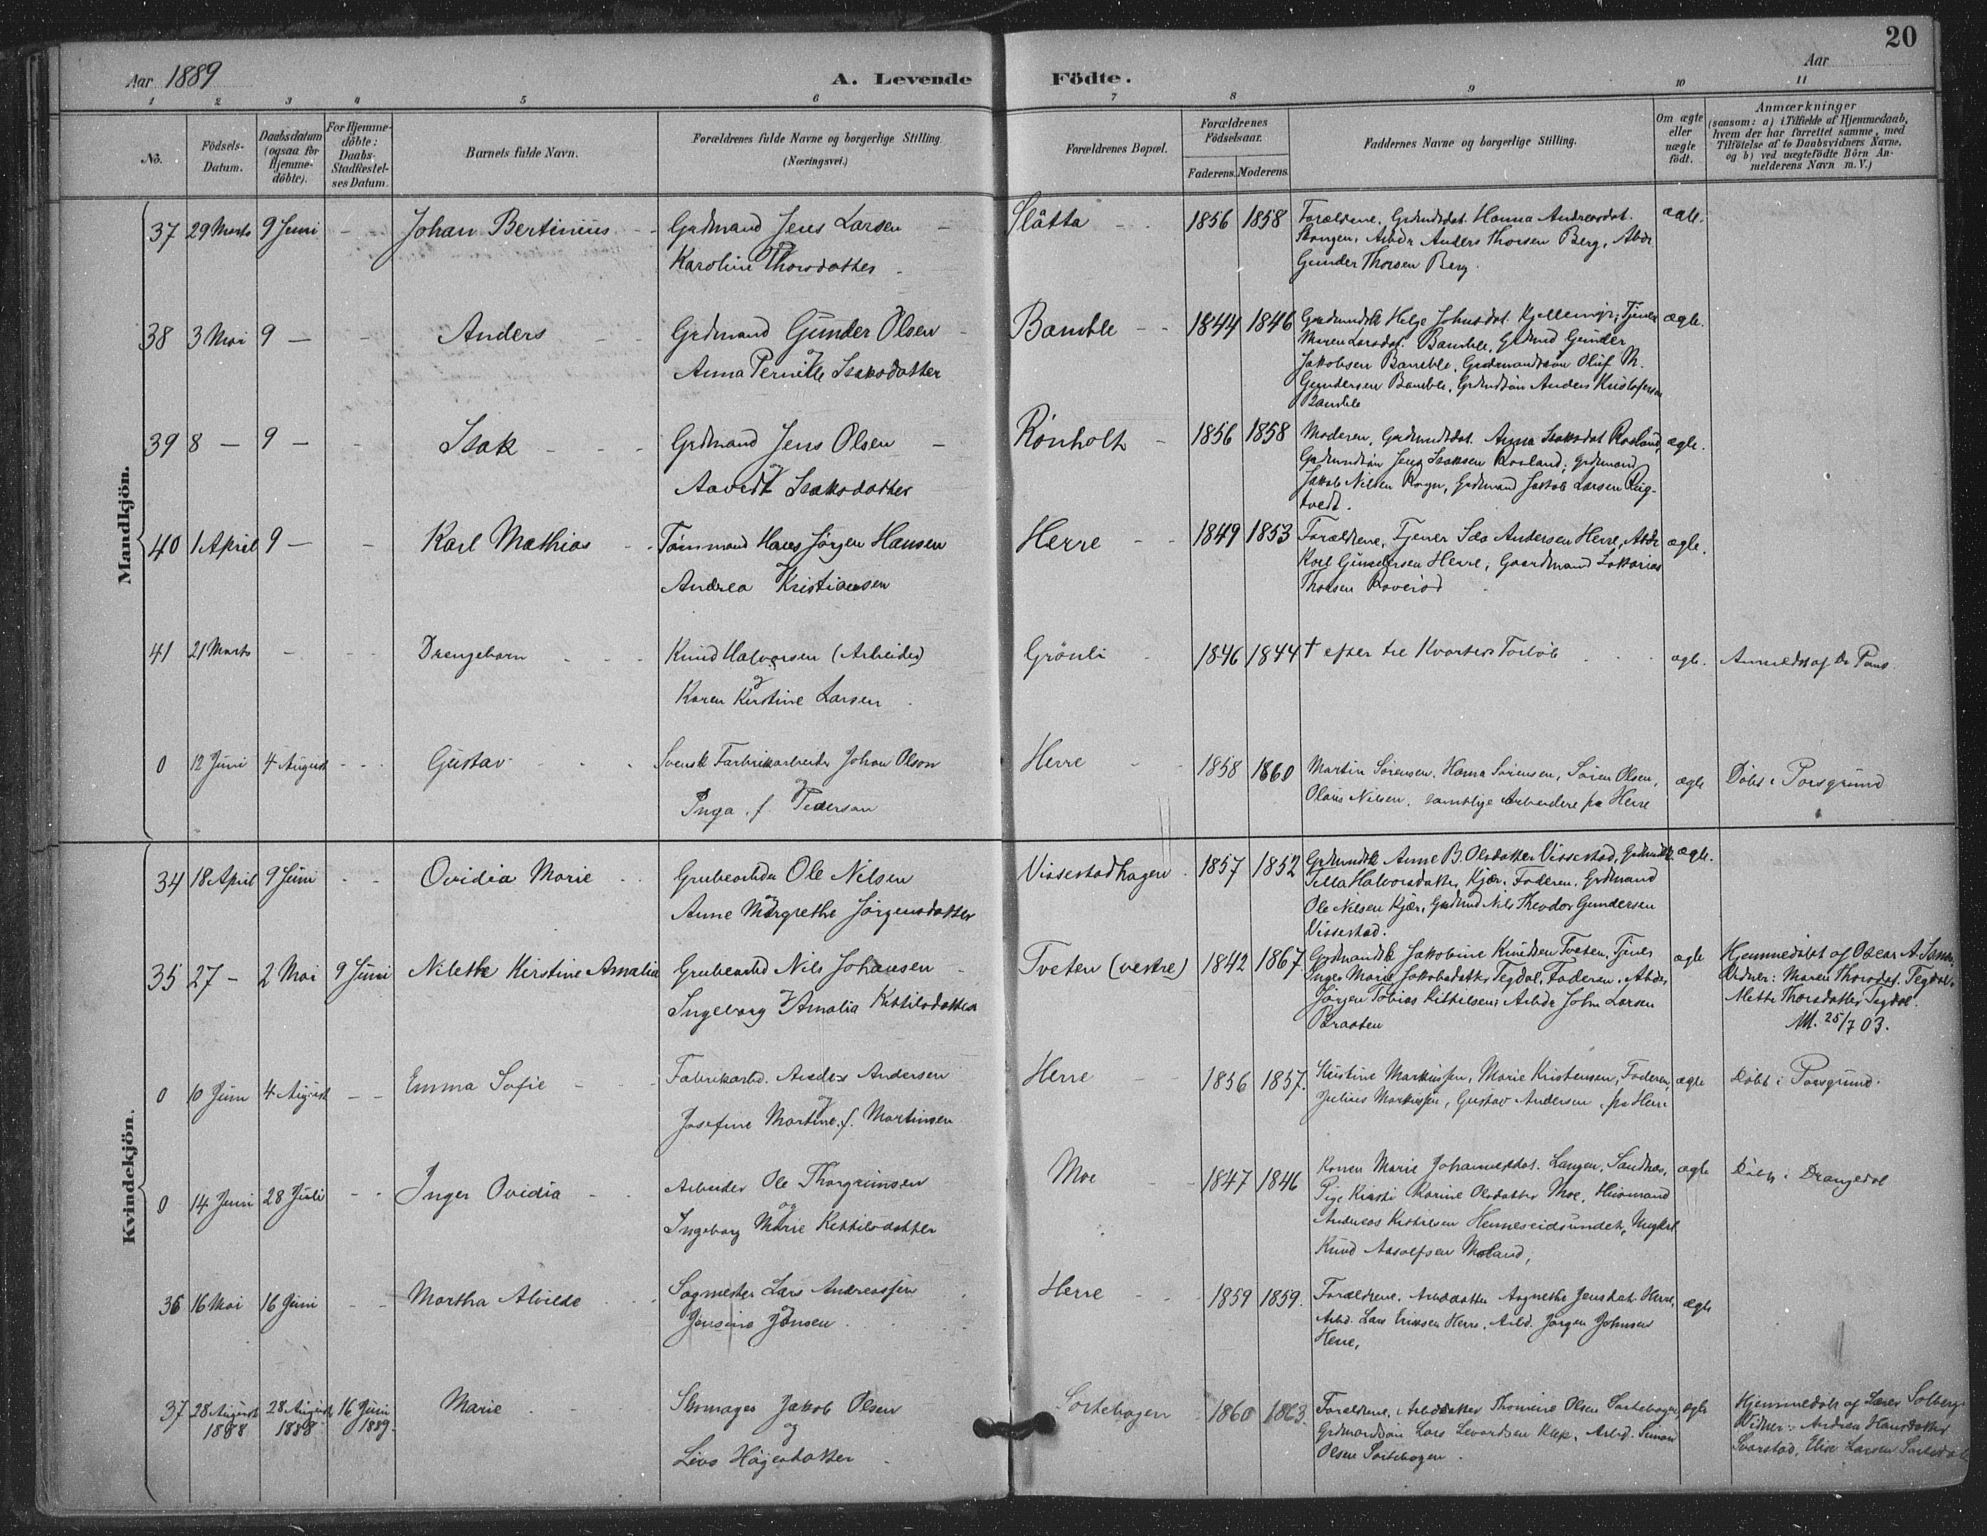 20
Aar 1889
A. Levende Födte.
Aar
1 2 3 4 5 6 7 8 9 10 11
No.
Födsels-
Datum.
Daabsdatum
(ogsaa for
Hjemme-
döbte).
For Hjemme-
döbte:
Daabs-
Stadfæstel-
ses Datum.
Barnets fulde Navn.
Forældrenes fulde Navne og borgerlige Stilling
(Næringsvei.)
Forældrenes Bopæl.
Forældrenes
Födselsaar.
Faderens. Moderens.
Faddernes Navne og borgerlige Stilling.
Om ægte
eller
uægte
födt.
Anmærkninger
(saasom: a) i Tilfælde af Hjemmedaab,
hvem der har forrettet samme, med
Tilföielse af to Daabsvidners Navne,
og b) ved uægtefödte Börn An-
melderens Navn m. V.)
Mandkjön.
37 29 Marts 9 Juni - Johan Bertinius - - Grdmand Jens Larsen -
Karoline Thorsdatter
Slåtta - - 1856 1858 Forældrene, Grdmdsdat. Hanna Andreasdat. ægte.
Skougen, Arbdr Anders Thorsen Berg, Abdr
Gunder Thorsen Berg.
38 3 Mai 9 — - Anders - - Grdmand Gunder Olsen -
og
Anna Pernille Isaksdatter
Bamble - - 1844 1846 Grdmandsk Helje Johnsdat. Kjellemyr, Tjener ægte.
Maren Larsdat. Bamble, Grdmd Gunder
Jakobsen Bamble, Grdmandssøn Oluf M.
Gundersen Bamble, Grdmdsøn Anders Kristofersen
Bamble
39 8 — 9 — - Isak - - - Grdmand Jens Olsen -
og
Aavedt Isaksdatter
Rönholt - 1856 1858 Moderen, Grdmdsdat. Anna Isaksdat Rosland, ægte.
Grdmandsøn Jens Isaksen Rosland, Grdmand
Jakob Nilsen Rogn, Grdmand Jakob Larsen Rug-
tvedt.
40 1 April 9 — - Karl Mathias - - Tømmand Hans Jörgen Hansen
og
Andrea Kristiansen
Herre - - 1849 1853 Forældrene, Tjener Andersen Herre, Abdr ægte.
Karl Gundersen Herre, Gaardmand Sakarias
Thorsen
41 21 Marts - - Drengebarn - - - Knud Halvorsen (Arbeider)
og
Karen Kirstine Larsen
Grönli - 1846 1844 † efter tre Kvarters Forløb - - ægte. Anmeldt af
0 12 Juni 4 August - - - Gustav - - - Svensk Fabrikarbeider Johan Olson
og
Inga f. Pederson
Herre - - 1858 1860 Martin Sørensen, Hanna Sørensen, Søren Olsen, ægte Döbt i Porsgrund
Olaus Nilsen, samtlige Arbeidere på Herre
Kvindekjön.
34 18 April 9 Juni - - Ovidia Marie - Grubearbdr Ole Nilsen
og
Anne Margrethe Jörgensdatter
Vissestadhagen. 1857 1852 Grdmandsk Anne B. Olsdatter Vissestad, Grdmdsk ægte.
Tella Halvorsdatter Kjær, Faderen, Grdmand
Ole Nilsen Kjær, Grdmd Nils Theodor Gundersen
Vissestad.
35 27 — 2 Mai 9 Juni Nilette Kirstine Amalia Grubearbd Nils Johansen -
og
Ingeborg Amalia Kittilsdatter
Tveten (vestre) 1842 1867 Grdmandsk Jakobine Knudsen Tveten, Tjener ægte
Inger Marie Jakobsdatter Tegdal, Faderen, Abdr
Jörgen Tobias Kittelsen, Arbdr John Larsen
Braaten
Hjemmedöbt af Oscar A.
Vidner: Maren Thorsdat. Tegdal,
Mette Thorsdatter Tegdal.
Att. 25/7 03.
0 10 Juni 4 August - - Emma Sofie - - - Fabrikarbd. Anders Andersen
og
Josefine Martine f. Martinsen
Herre - - 1856 1857. Kirstine Markussen, Marie Kristensen, Faderen, ægte Döbt i Porsgrund.
Julius Markussen, Gustav Andersen på Herre
0 14 Juni 28 Juli - - Inger Ovidia - - Arbeider Ole Thorgrimsen
og
Ingeborg Marie Kittilsdatter
Moe - - 1847 1846 Karen Marie Johannesdat. Langen, Sandnes, ægte Döbt i Drangedal
Pige Kirsti Karine Olsdatter Moe, Husmand
Andreas Kittilsen Henneseidsundet, Ungkarl
Knud Aasolfsen Moland,
36 16 Mai 16 Juni - - Martha Alvilde - - Sagmester Lars Andreassen
og
Jensine Jensen
Herre - - 1859 1859. Forældrene, Arbdatter Aagnethe Jensdat. Herre, ægte
Arbd. Lars Eriksen Herre, Arbd. Jørgen Johnsen
Herre,
37 28 August 1888 28 August 1888 16 Juni 1889. Marie - - Skomager Jakob Olsen
og
Live Högendatter
Sortebogen 1860 1863. Forældrene, Arbdatter Thomine Olsen Sortebogen, ægte
Grdmandsøn Lars Levordsen Klep, Arbd. Simon
Olsen Sortebogen.
Hjemmedöbt af Lærer Solberg.
Vidner: Andrea Hansdatter
Svarstad, Elise Larsen